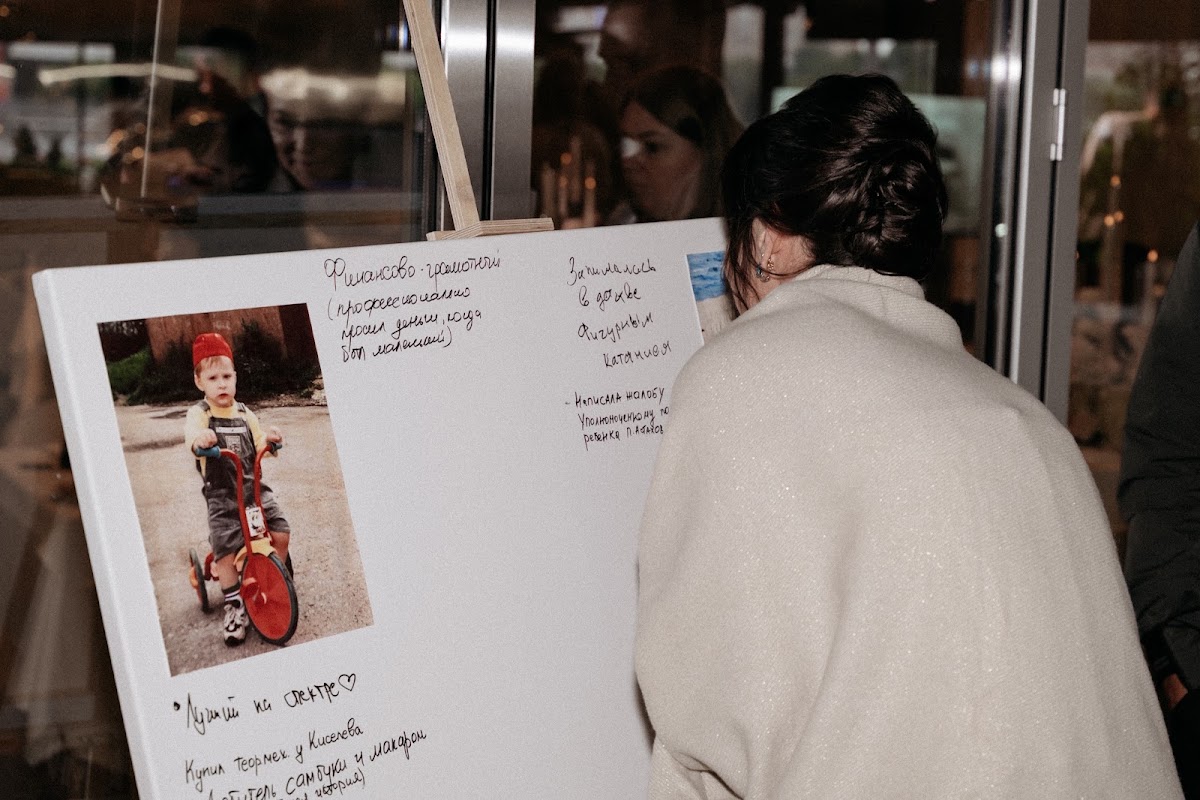 Финансово-грамотный
(профессионально
просил деньги, когда
был маленький)
Занималась
в детстве
Фигурным
катанием
- Написала жалобу
Уполномоченному по
ребенка П.Астахов
• Лучший на спектре♡
Купил теормех у Киселева
Любитель самбуки и макарон
история)